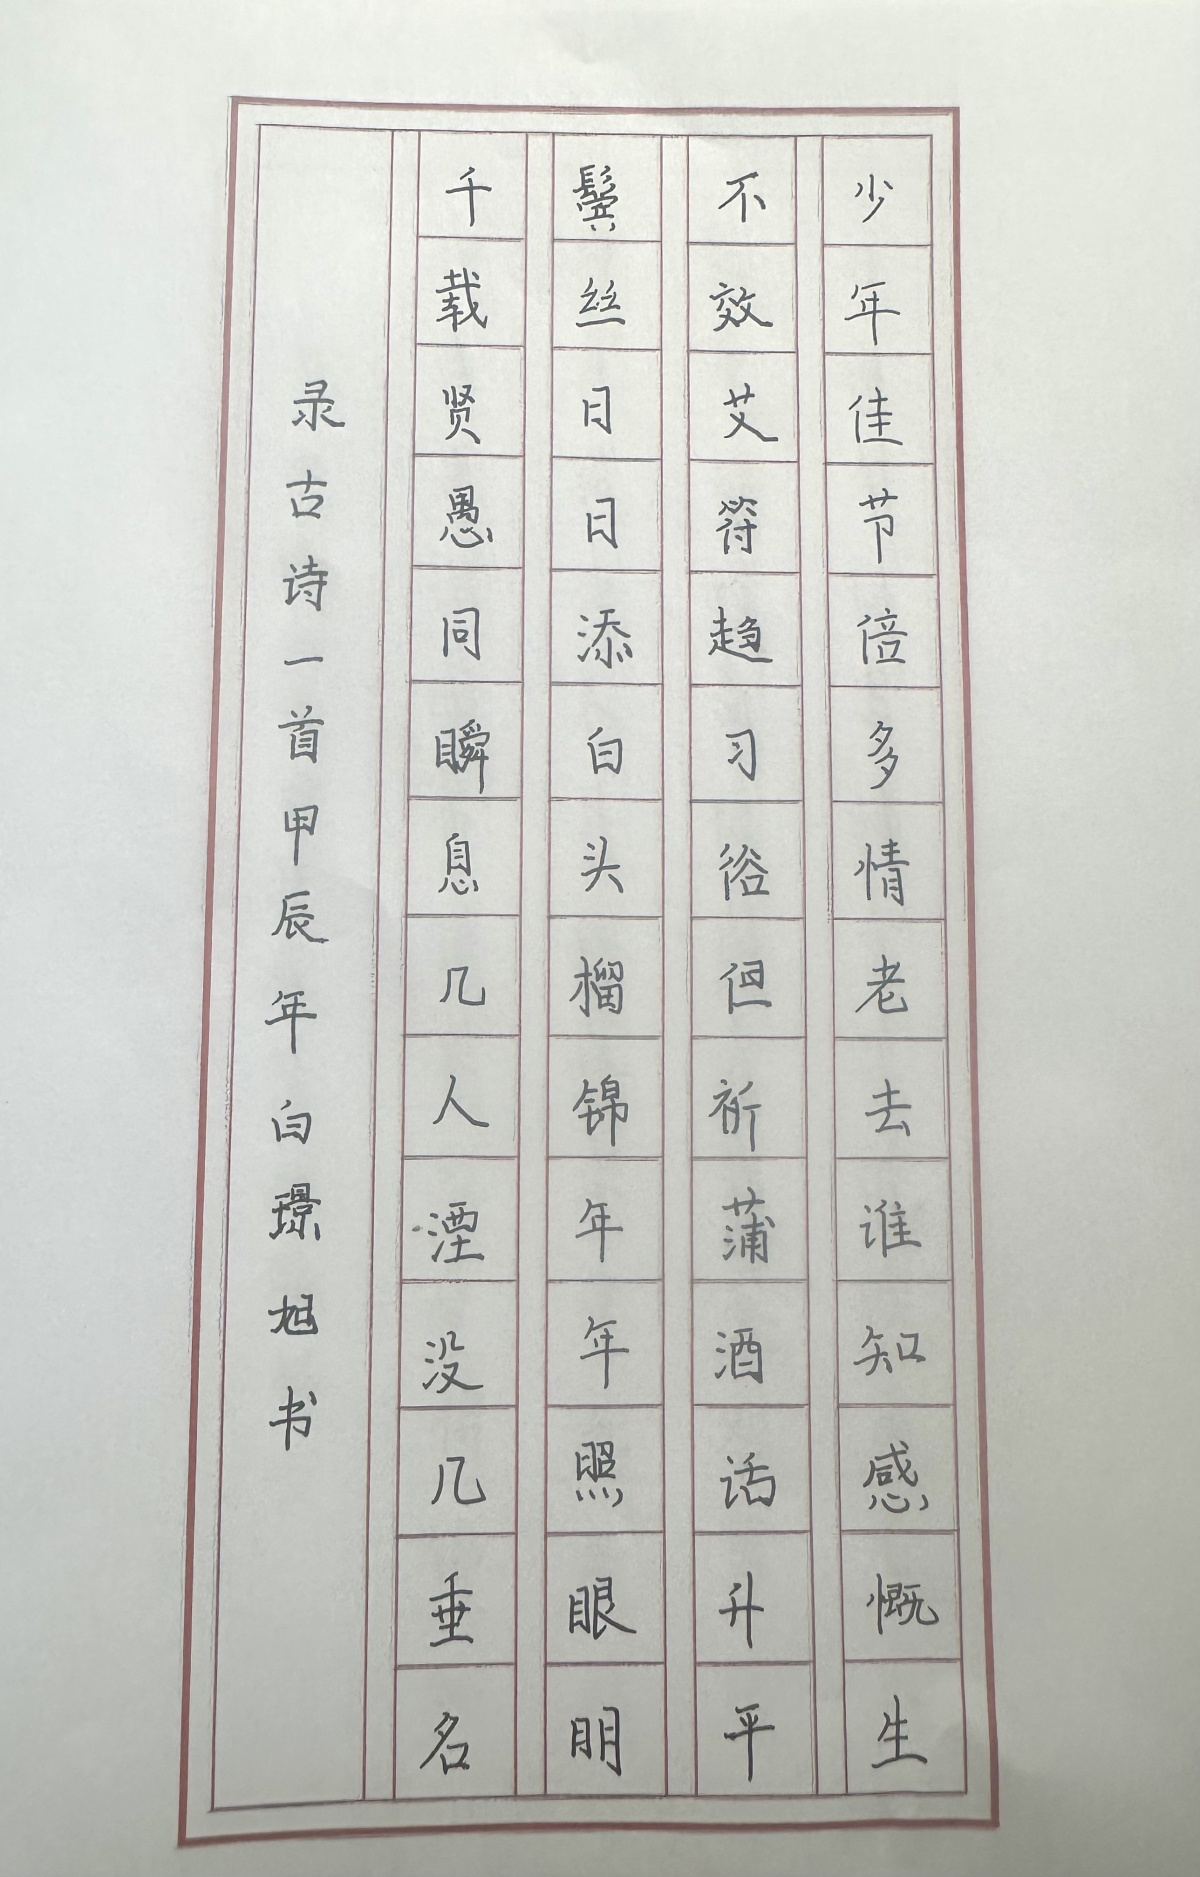 少年佳节倍多情老去谁知感慨生
不效艾符趋习俗但祈蒲酒话升平
鬓丝日日添白头榴锦年年照眼明
千载贤愚同瞬息几人湮没几垂名
录古诗一首甲辰年白璟旭书